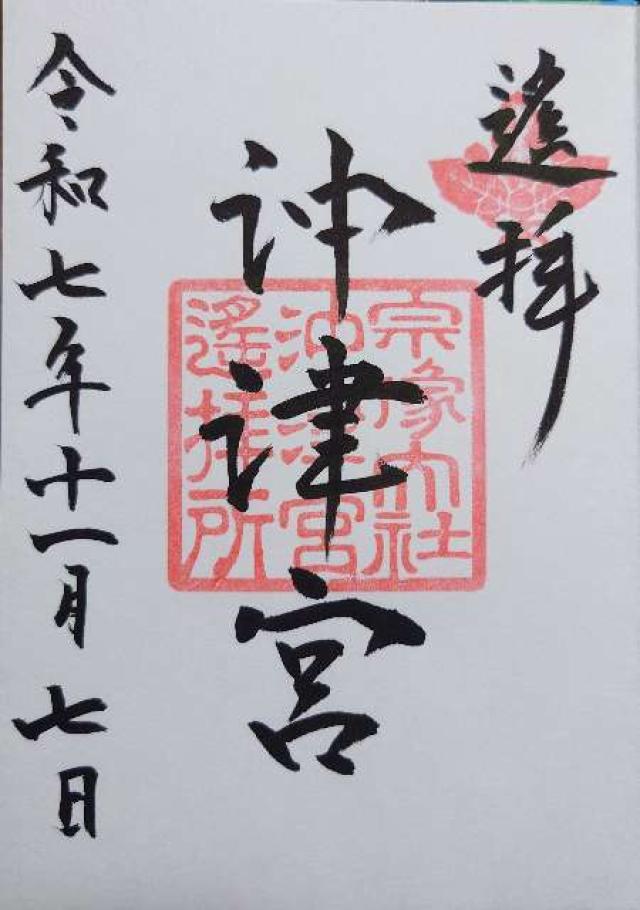 遙拝
沖津宮
宗像大社
沖津宮
遙拝所
令和七年十一月七日